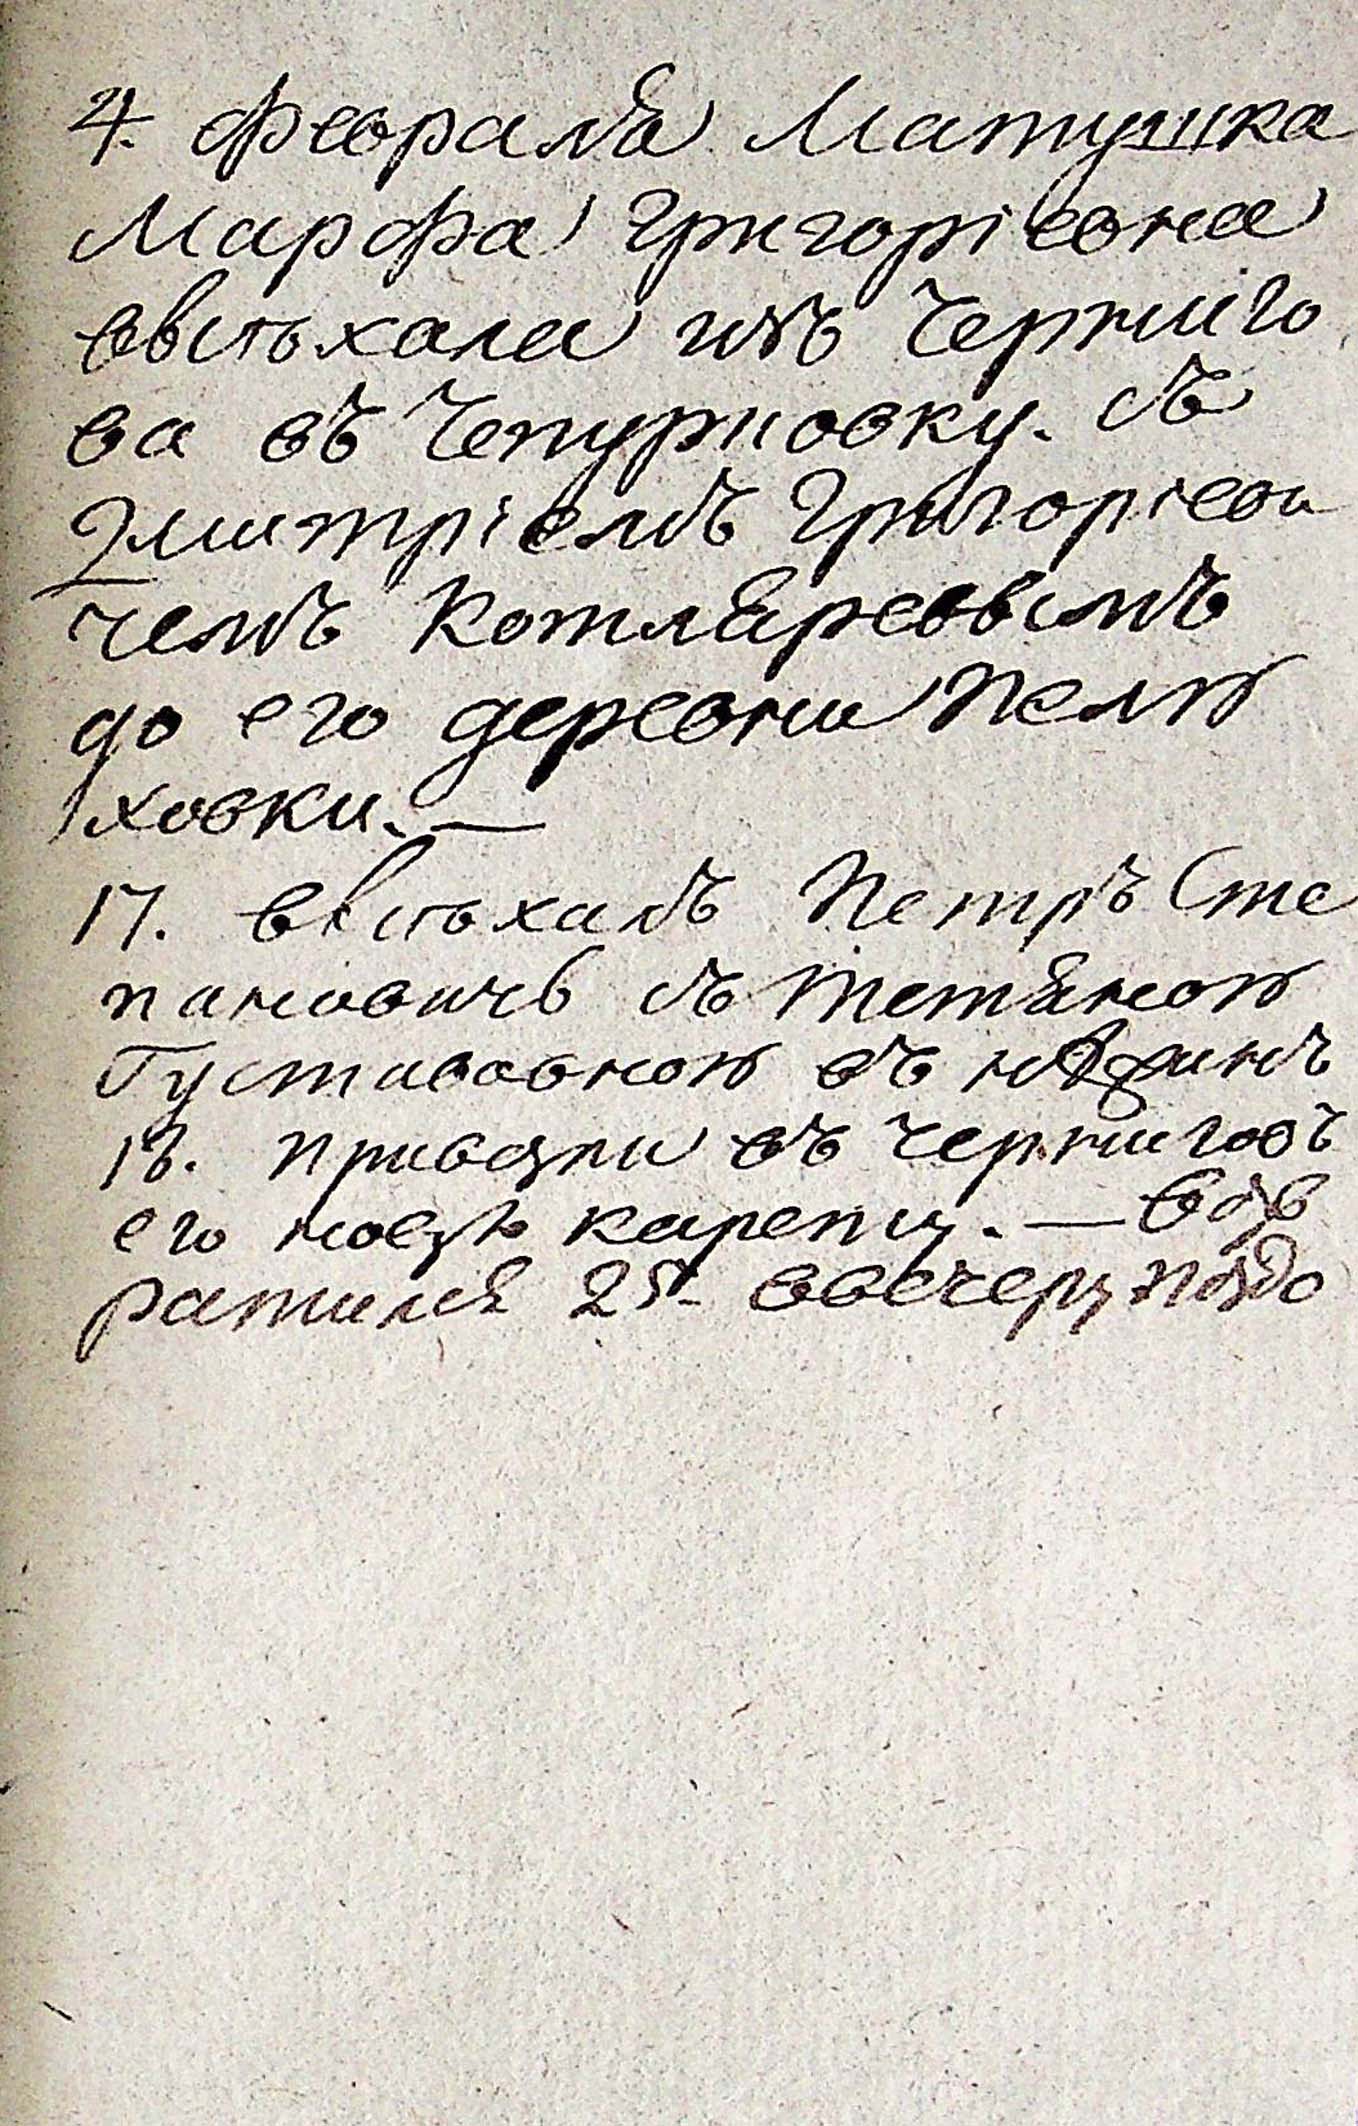 4. Февраля Матушка
Марфа Григоріевна
выѣхала изъ Черниго
ва въ Чепурновку. съ
Дмитріемъ Григоріеви
чемъ Котляревымъ
до его деревни Пелю
ховки. —
17. выѣхалъ Петръ Сте
пановичъ съ тетяною
Густавовною въ нѣжинъ
18. въ черниговъ
его карету. — воз
ратился 25 ввечеру поздо